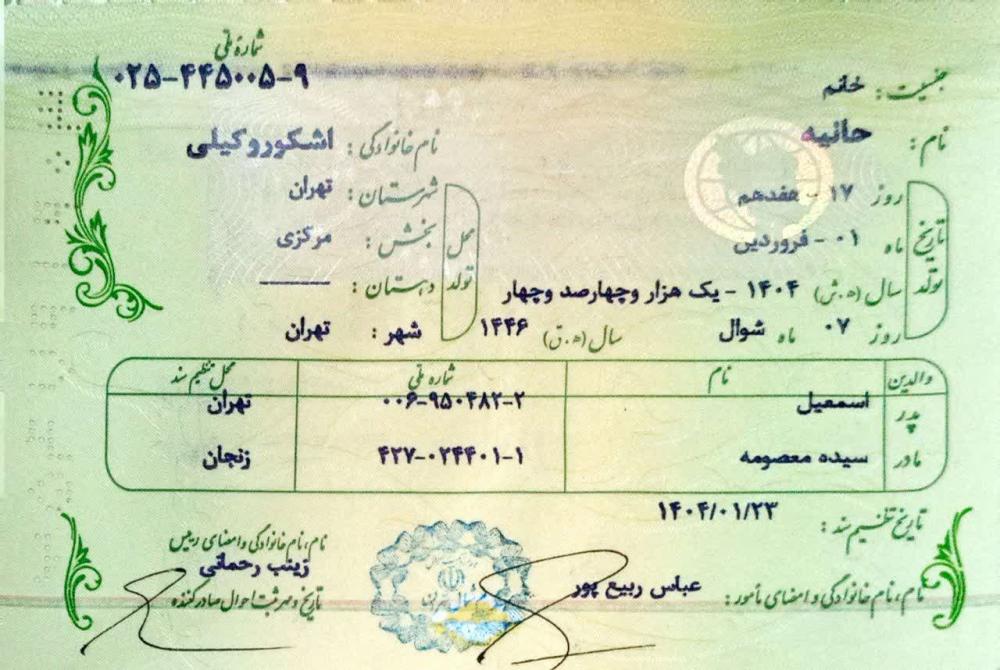 شماره ملی
۰۲۵-۴۴۵۰۰۵-۹
جنسیت : خانم
نام : حانیه
نام خانوادگی : اشکوروکیلی
تاریخ تولد
روز ۱۷ - هفدهم
ماه ۰۱ - فروردین
سال (ه.ش) ۱۴۰۴ - یک هزار وچهارصد وچهار
روز ۰۷ ماه شوال سال (ه.ق) ۱۴۴۶
محل تولد
شهرستان : تهران
بخش : مرکزی
دهستان : ———
شهر : تهران
والدین نام شماره ملی محل تنظیم سند
پدر اسمعیل ۰۰۶-۹۵۰۴۸۲-۲ تهران
مادر سیده معصومه ۴۲۷-۰۲۴۴۰۱-۱ زنجان
تاریخ تنظیم سند : ۱۴۰۴/۰۱/۲۳
نام، نام خانوادگی و امضای مأمور : عباس ربیع پور
نام، نام خانوادگی و امضای رییس
زینب رحمانی
تاریخ و مهر ثبت احوال صادرکننده